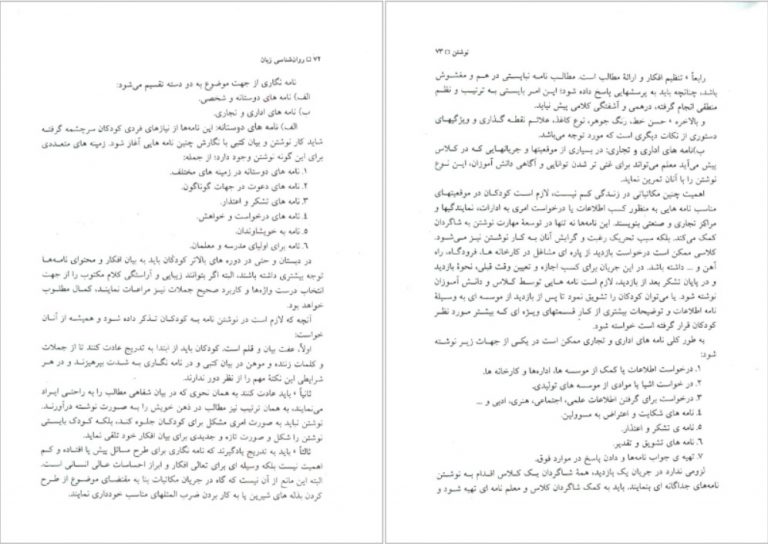 ۷۲ □ روان‌شناسی زبان
نامه نگاری از جهت موضوع به دو دسته تقسیم می‌شود:
الف) نامه های دوستانه و شخصی.
ب) نامه های اداری و تجاری.
الف) نامه های دوستانه: این نامه‌ها از نیازهای فردی کودکان سرچشمه گرفته
شاید کار نوشتن و بیان کتبی با نگارش چنین نامه هایی آغاز شود. زمینه های متعددی
برای این گونه نوشتن وجود دارد؛ از جمله:
۱. نامه های دوستانه در زمینه های مختلف.
۲. نامه های دعوت در جهات گوناگون.
۳. نامه های تشکر و اعتذار.
۴. نامه های درخواست و خواهش.
۵. نامه به خویشاوندان.
۶. نامه برای اولیای مدرسه و معلمان.
در دبستان و حتی در دوره های بالاتر کودکان باید به بیان افکار و محتوای نامه‌ها
توجه بیشتری داشته باشند، البته اگر بتوانند زیبایی و آراستگی کلام مکتوب را از جهت
انتخاب درست واژه‌ها و کاربرد صحیح جملات نیز مراعات نمایند، کمال مطلوب
خواهد بود.
آنچه که لازم است در نوشتن نامه به کودکان تذکر داده شود و همیشه از آنان
خواست:
اولاً، عفت بیان و قلم است. کودکان باید از ابتدا به تدریج عادت کنند تا از جملات
و کلمات زننده و موهن در بیان کتبی و در نامه نگاری به شدت بپرهیزند و در هر
شرایطی این نکتهٔ مهم را از نظر دور ندارند.
ثانیاً باید عادت کنند به همان نحوی که در بیان شفاهی مطالب را به راحتی ایراد
می‌نمایند، به همان ترتیب نیز مطالب در ذهن خویش را به صورت نوشته درآورند.
نوشتن نباید به صورت امری مشکل برای کودکان جلوه کند، بلکه کودک بایستی
نوشتن را شکل و صورت تازه و جدیدی برای بیان افکار خود تلقی نماید.
ثالثاً باید به تدریج یادگیرند که نامه نگاری برای طرح مسائل پیش پا افتاده و کم
اهمیت نیست بلکه وسیله ای برای تعالی افکار و ابراز احساسات عالی انسانی است.
البته این مانع از آن نیست که گاه در جریان مکاتبات بنا به مقتضای موضوع از طرح
کردن بذله های شیرین یا به کار بردن ضرب المثلهای مناسب خودداری نمایند.
نوشتن □ ۷۳
رابعاً تنظیم افکار و ارائهٔ مطالب است. مطالب نامه نبایستی در هم و مغشوش
باشد، چنانچه باید به پرسشهایی پاسخ داده شود؛ این امر بایستی به ترتیب و نظم
منطقی انجام گرفته، درهمی و آشفتگی کلامی پیش نیاید.
و بالاخره حسن خط، رنگ جوهر، نوع کاغذ، علائم نقطه گذاری و ویژگیهای
دستوری از نکات دیگری است که مورد توجه می‌باشد.
ب)نامه های اداری و تجاری: در بسیاری از موقعیتها و جریانهایی که در کلاس
پیش می‌آید معلم می‌تواند برای غنی تر شدن توانایی و آگاهی دانش آموزان، این نوع
نوشتن را با آنان تمرین نماید.
اهمیت چنین مکاتباتی در زندگی کم نیست، لازم است کودکان در موقعیتهای
مناسب نامه هایی به منظور کسب اطلاعات یا درخواست امری به ادارات، نمایندگیها و
مراکز تجاری و صنعتی بنویسند. این نامه‌ها نه تنها در توسعهٔ مهارت نوشتن به شاگردان
کمک می‌کند، بلکه سبب تحریک رغبت و گرایش آنان به کار نوشتن نیز می‌شود.
کلاسی ممکن است درخواست بازدید از پاره ای مشاغل در کارخانه ها، فرودگاه، راه
آهن و ... داشته باشد. در این جریان برای کسب اجازه و تعیین وقت قبلی، نحوهٔ بازدید
و در پایان تشکر بعد از بازدید، لازم است نامه هایی توسط کلاس و دانش آموزان
نوشته شود. یا می‌توان کودکان را تشویق نمود تا پس از بازدید از موسسه ای به وسیلهٔ
نامه اطلاعات و توضیحات بیشتری از کار قسمتهای ویژه ای که بیشتر مورد نظر
کودکان قرار گرفته است خواسته شود.
به طور کلی نامه های اداری و تجاری ممکن است در یکی از جهات زیر نوشته
شود:
۱. درخواست اطلاعات یا کمک از موسسه ها، اداره‌ها و کارخانه ها.
۲. در خواست اشیا یا موادی از موسسه های تولیدی.
۳. درخواست برای گرفتن اطلاعات علمی، اجتماعی، هنری، ادبی و ...
۴. نامه های شکایت و اعتراض به مسوولین.
۵. نامه ی تشکر و اعتذار.
۶. نامه های تشویق و تقدیر.
۷. تهیه ی جواب نامه‌ها و دادن پاسخ در موارد فوق.
لزومی ندارد در جریان یک بازدید، همهٔ شاگردان یک کلاس اقدام به نوشتن
نامه‌های جداگانه ای بنمایند. باید به کمک شاگردان کلاس و معلم نامه ای تهیه شود و